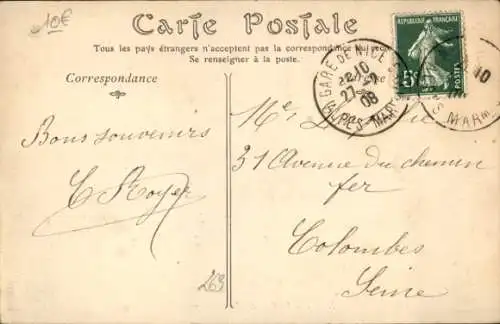 10€
Carte Postale
Tous les pays étrangers n'acceptent pas la correspondance au recto
Se renseigner à la poste.
Correspondance
RÉPUBLIQUE FRANÇAISE
5c
POSTES
GARE DE NICE
22 10
27-2
08
ALPES-MAR
10
MARM
Bons souvenirs
E Royer
31 Avenue du chemin
fer
Colombes
Seine
269